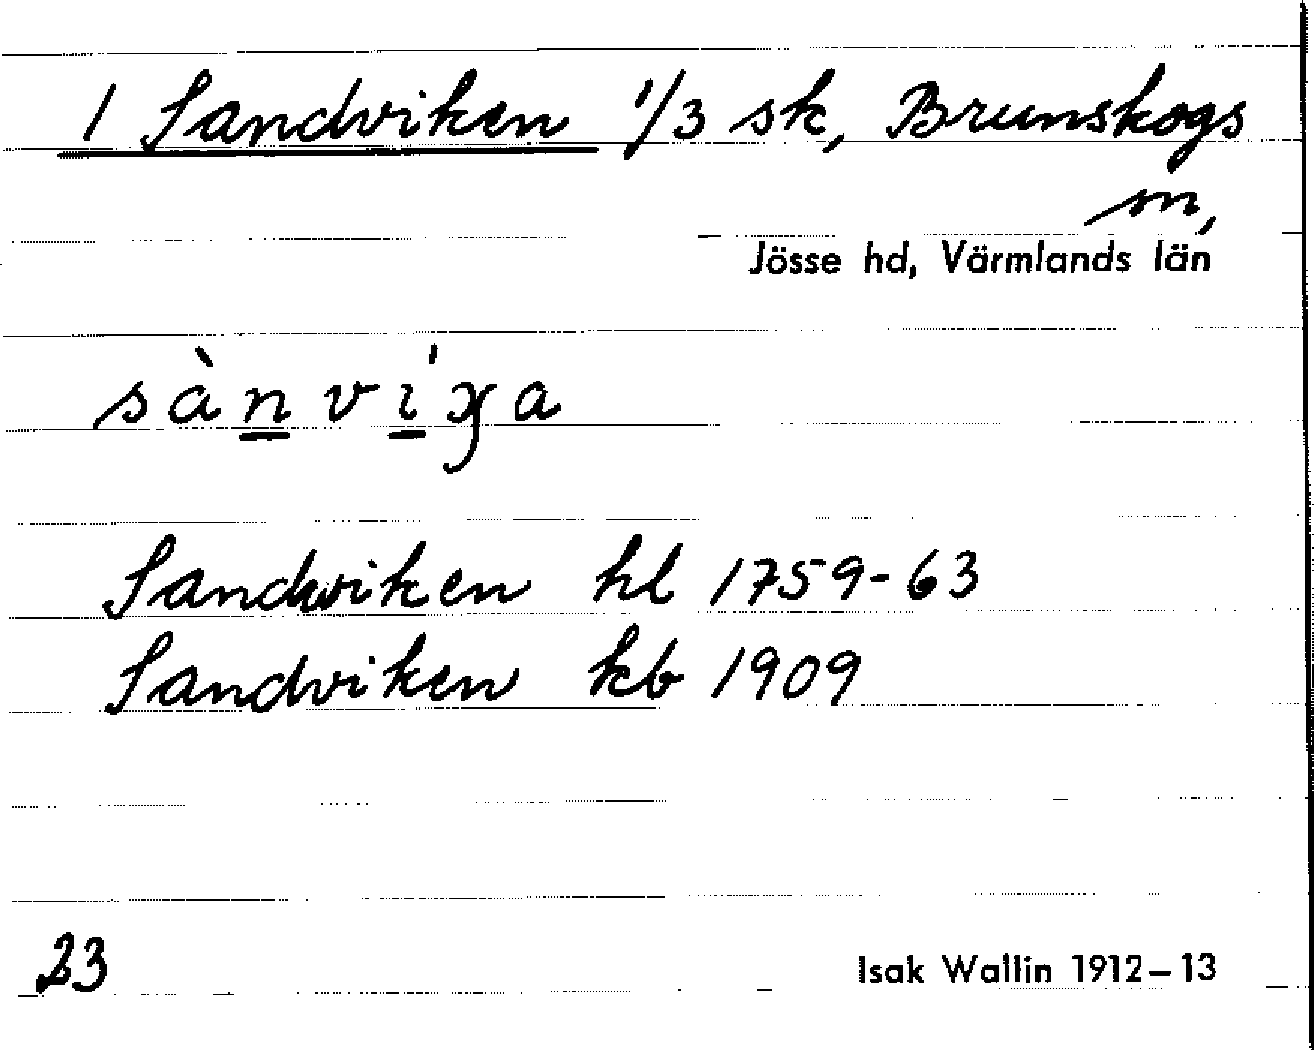 1 Sandviken 1/3 sk, Brunskogs
sn,
Jösse hd, Värmlands län
Sandviken hl 1759-63
Sandviken kb 1909
23
Isak Wallin 1912–13